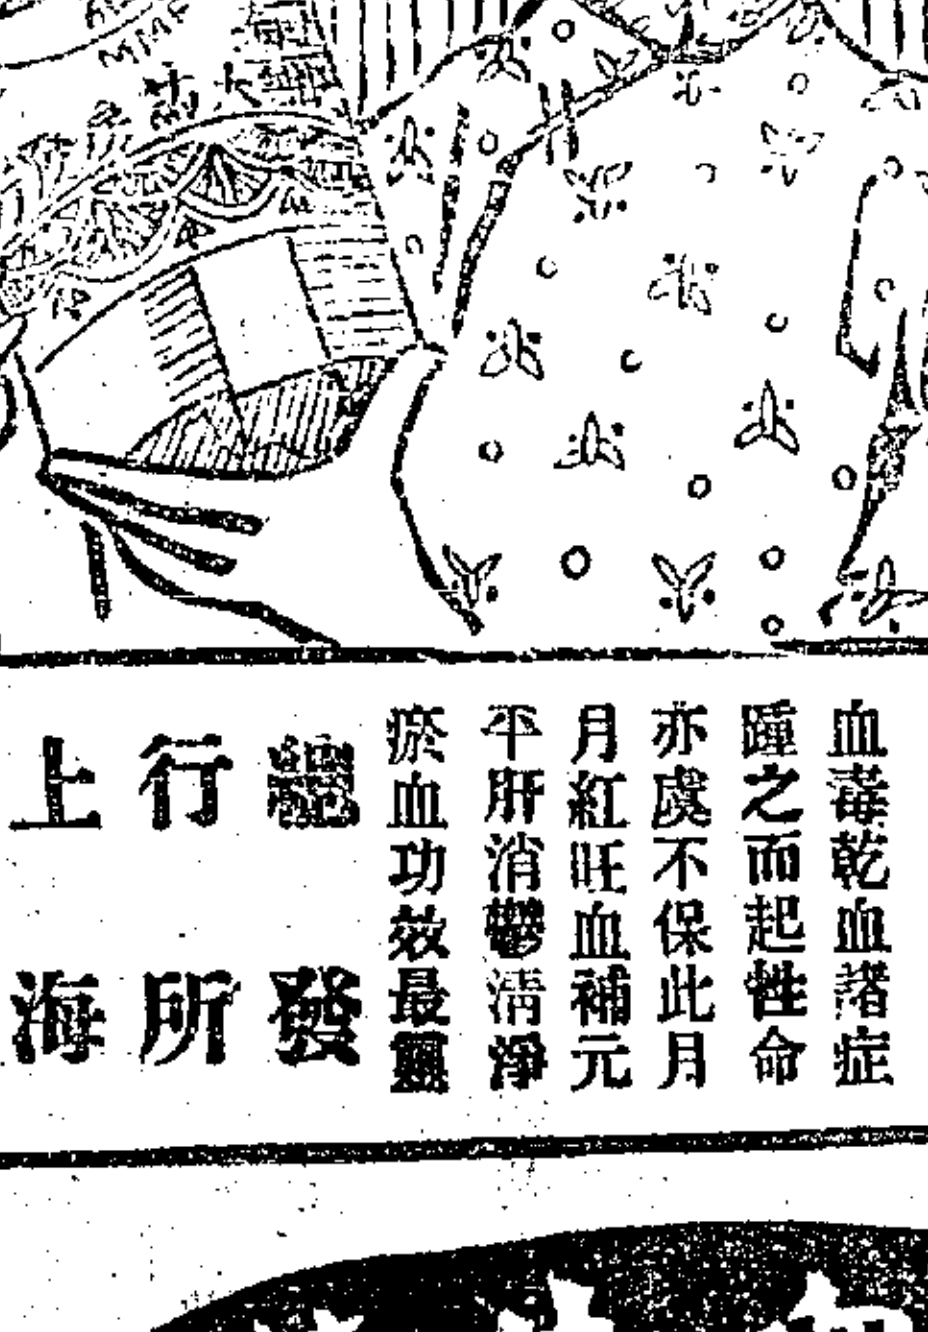 血毒乾血諸症
踵之而起性命
亦虞不保此月
月紅旺血補元
平肝消鬱清淨
瘀血功效最靈
總發
行所
上海